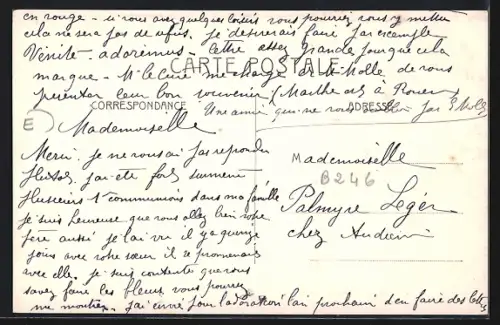 en rouge - si vous avez quelques loisirs vous pourriez vous y mettre
cela ne sera pas de refus. je desirerais faire par exemple
Venite - adoremus - lettre assez grande pour que cela
marque - Mr le Curé me charge et Mlle de vous
presenter leur bon souvenir (Marthe est à Rouen)
CARTE POSTALE
CORRESPONDANCE
ADRESSE
Une amie qui ne vous oublie pas
E
Mademoiselle
Merci, je ne vous ai pas repondu
plutot, j'ai été fort surmenée
plusieurs 1re communions dans ma famille
je suis heureuse que vous allez bien votre
père aussi je l'ai vu il y a quinze
jours avec votre sœur il se promenait
avec elle. je suis contente que vous
savez faire les fleurs vous pourrez
me montrer. j'ai envie pour l'adoration l'an prochain d'en faire des
Mademoiselle
B246
Palmyre Leger
chez